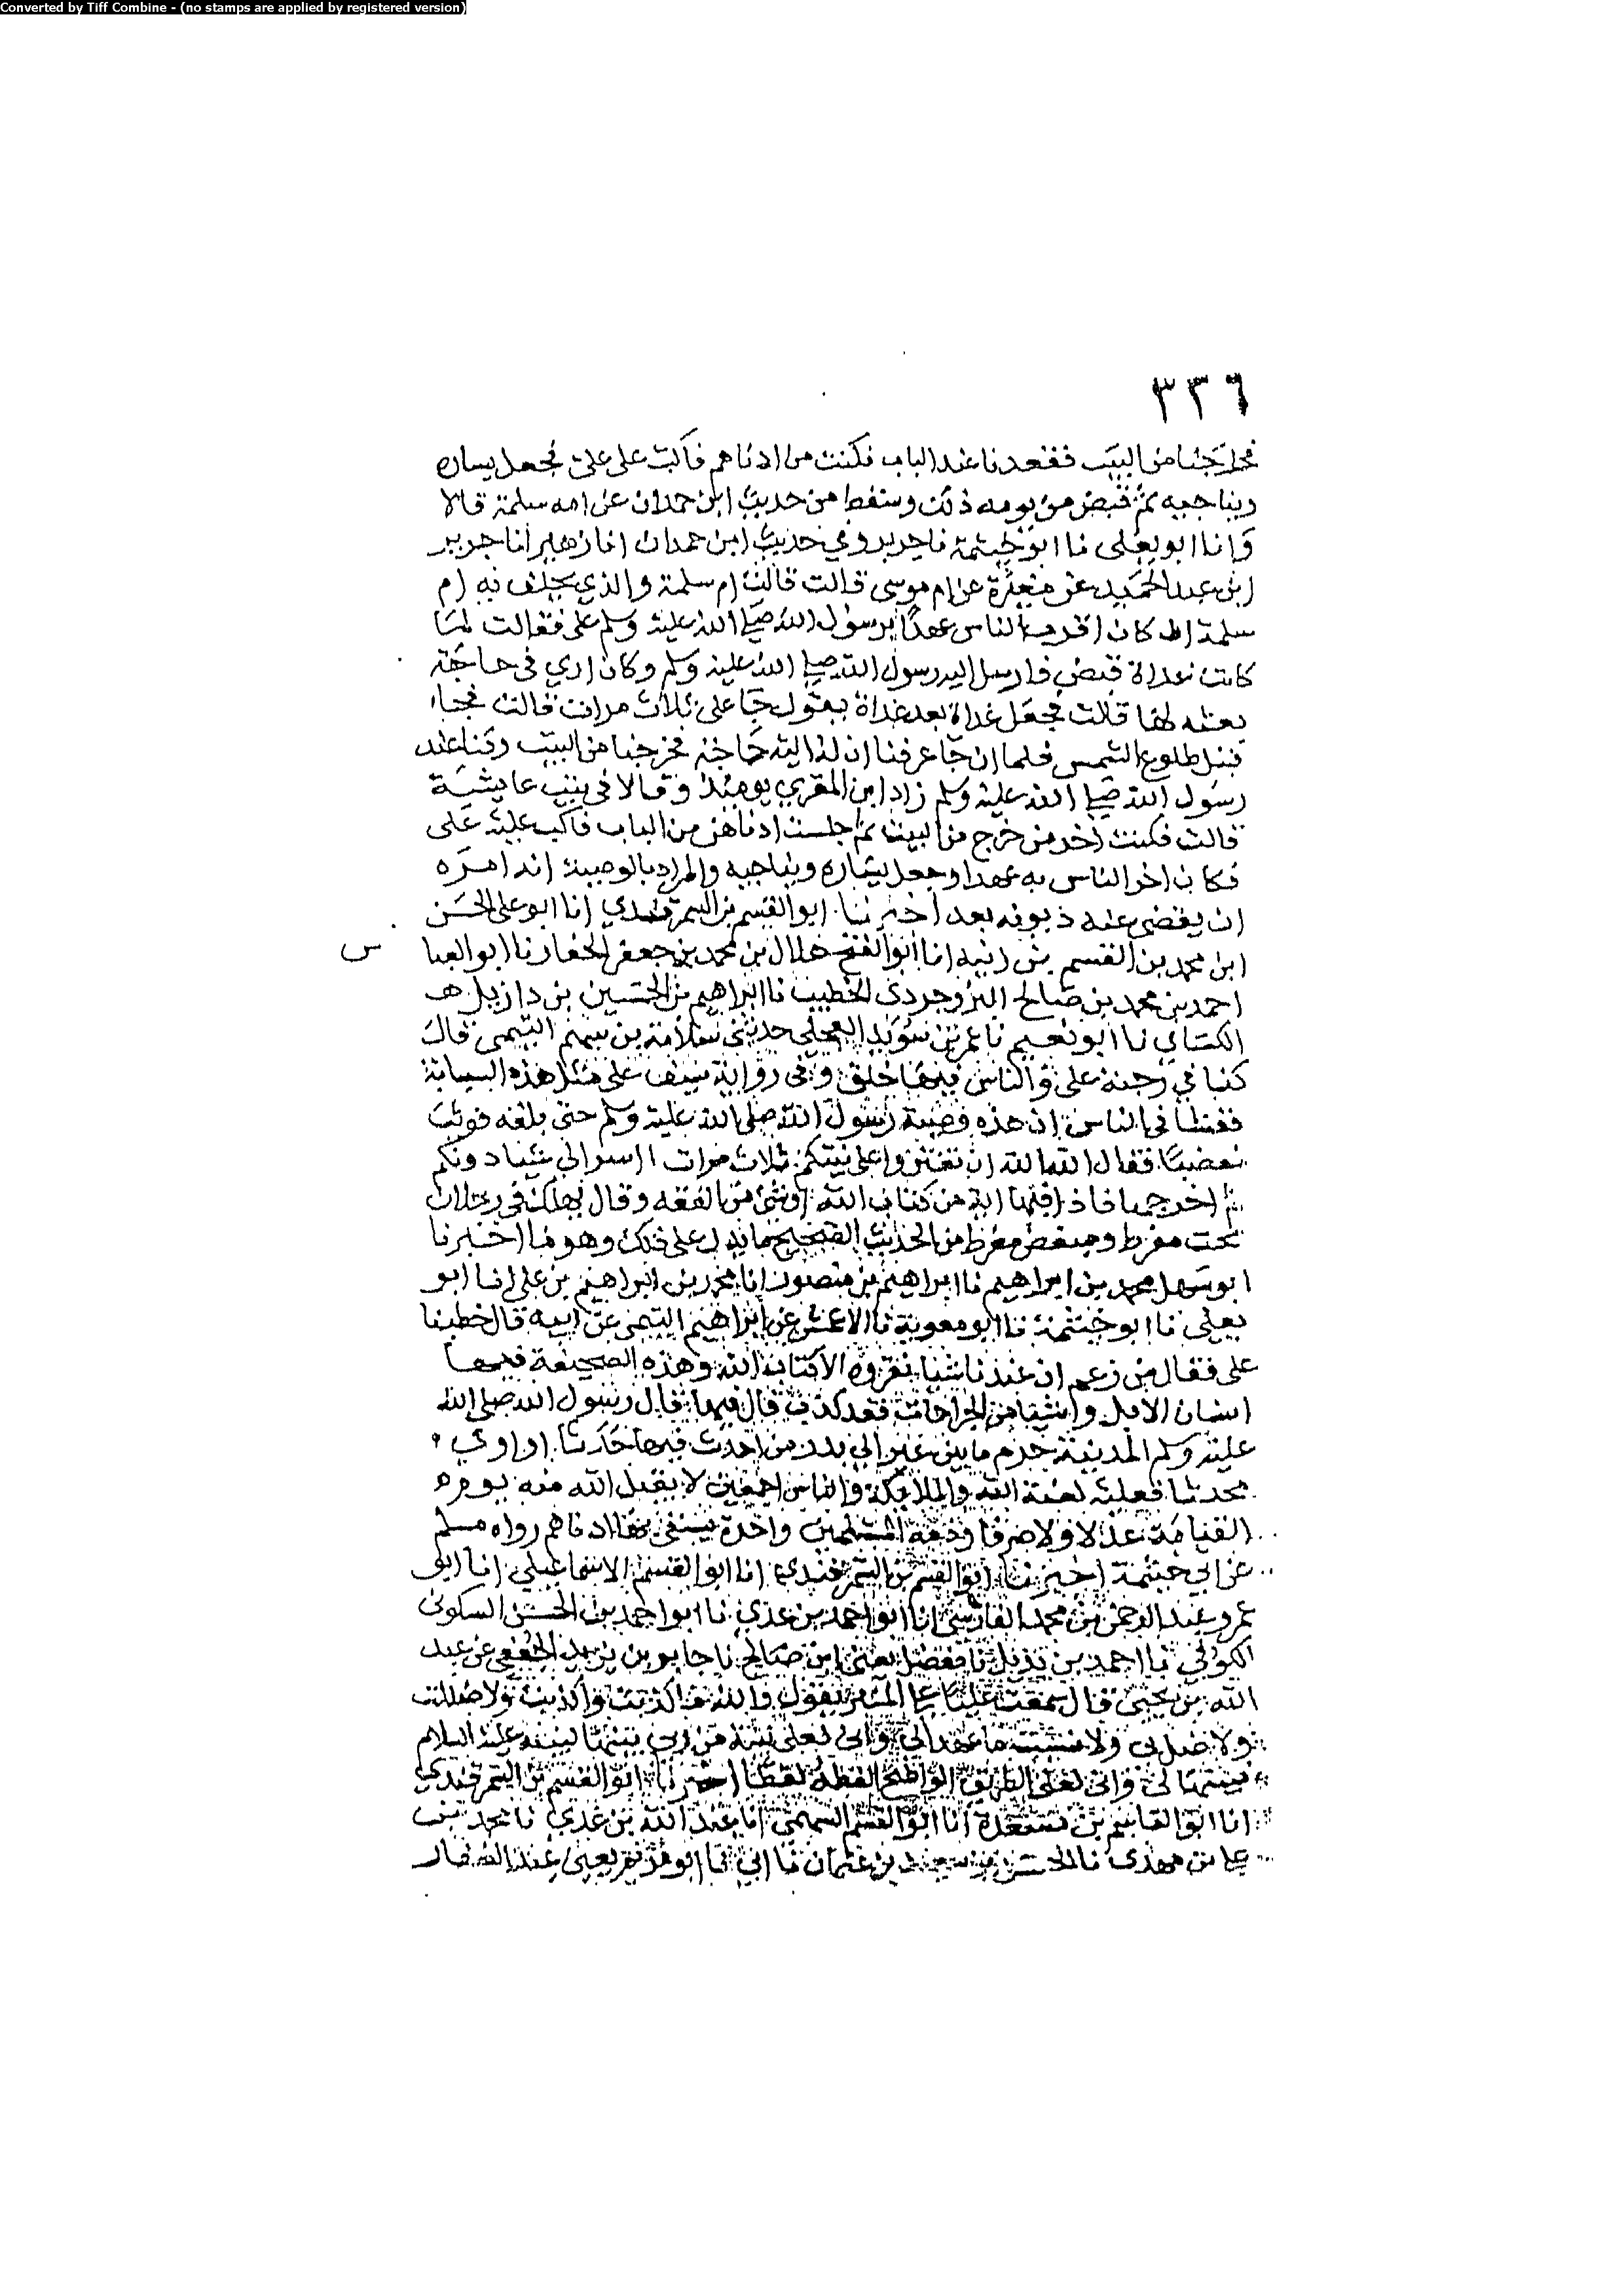 Converted by Tiff Combine - (no stamps are applied by registered version)
٣٣٦
فخرجنا من البيت فقعدنا عند الباب فكنت من ادناهم فاكب على علي فجعل يساره
ويناجيه ثم قبض من يومه ذلك وسقط من حديث ابن حمدان عن ام سلمة قالا
وانا ابو يعلى نا ابو خيثمة نا جرير وفي حديث ابن حمدان انا زهير انا جرير
ابن عبد الحميد عن مغيرة عن ام موسى قالت قالت ام سلمة والذي يحلف به ام
سلمة ان كان اقرب الناس عهدا برسول الله صلى الله عليه وسلم علي فقالت لما
كانت غداة قبض فارسل اليه رسول الله صلى الله عليه وسلم وكان اري في حاجة
بعثه لها قالت فجعل غداة بعد غداة يقول جا علي ثلاث مرات قالت فجاا
قبل طلوع الشمس فلما ان جا عرفنا ان له اليه حاجة فخرجنا من البيت وكنا عند
رسول الله صلى الله عليه وسلم زاد ابن المقري يومئذ وقالا في بيت عايشة
قالت فكنت اخر من خرج من البيت ثم جلست ادناهن من الباب فاكب عليه علي
فكان اخر الناس به عهدا وجعل يساره ويناجيه والمراد بالوصية انه امره
ان يقضي عنه ديونه بعد اخبرنا ابو القسم بن السمرقندي انا ابو علي الحسن
ابن محمد بن القسم بن زنية انا ابو الفتح هلال بن محمد بن جعفر الحفار نا ابو العبا س
احمد بن محمد بن صالح البروجردي الخطيب نا ابراهيم بن الحسين بن دازيل
الكساي نا ابو نعيم نا عمر بن سويد العجلي حدثني سلامة بن سهم التيمي قال
كنا في رحبة علي والناس فيها حلق وفي رواية سيف علي مثل هذه السبابة
ففشا في الناس ان هذه وصية رسول الله صلى الله عليه وسلم حتى بلغه فوثب
مغضبا فقال الله الله ان تفتروا على نبيكم ثلاث مرات اسر الي شيا دونكم
ثم اخرجها فاذا فيها اية من كتاب الله او شي من الفقه وقال يهلك في رجلان
محب مفرط ومبغض مفرط من الحديث الصحيح ما يدل على ذلك وهو ما اخبرنا
ابو سهل محمد بن ابراهيم نا ابراهيم بن منصور انا محمد بن ابراهيم بن علي انا ابو
يعلى نا ابو خيثمة نا ابو معوية نا الاعمش عن ابراهيم التيمي عن ابيه قال خطبنا
علي فقال من زعم ان عندنا شيا نقروه الا كتاب الله وهذه الصحيفة فيها
اسنان الابل واشيا من الجراحات فقد كذب قال فيها قال رسول الله صلى الله
عليه وسلم المدينة حرم ما بين عير الى من احدث فيها حدثا او اوي
محدثا فعليه لعنة الله والملايكة والناس اجمعين لا يقبل الله منه يوم
القيامة عدلا ولا صرفا وذمة المسلمين واحدة يسعى بها ادناهم رواه مسلم
عن ابي خيثمة اخبرنا ابو القسم بن السمرقندي انا ابو القسم الاسماعيلي انا ابو
عمرو عبد الرحمن بن محمد الفارسي انا ابو احمد بن عدي نا ابو احمد بن الحسن السكوني
الكوفي نا احمد بن بديل نا مفضل يعني ابن صالح نا جابر بن يزيد الجعفي عن عبد
الله بن يحيى قال سمعت عليا على المنبر يقول والله ما كذبت ولا كذبت ولا ضللت
ولا ضل بي ولا نسيت ما عهد الي واني لعلى بينة من ربي بينها لنبيه عليه السلام
فبينها لي واني لعلى الطريق الواضح القطه لقطا اخبرنا ابو القسم بن السمرقندي
انا ابو القاسم بن مسعدة انا ابو القسم السهمي انا عبد الله بن عدي نا محمد بن
علي بن مهدي نا الحسن بن سعيد بن عثمان نا ابي نا ابو مريم يعني عبد الغفار